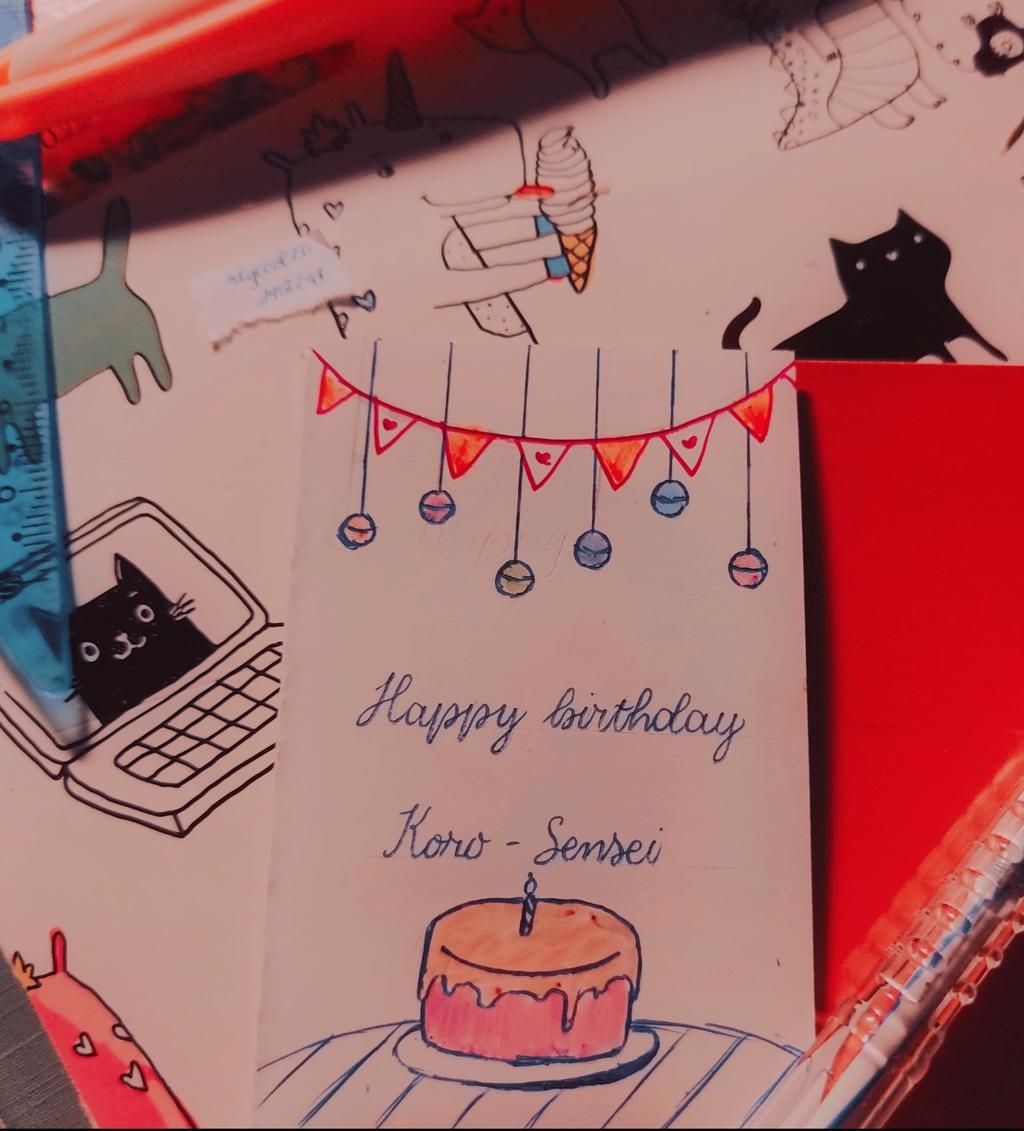 Happy birthday
Koro - Sensei